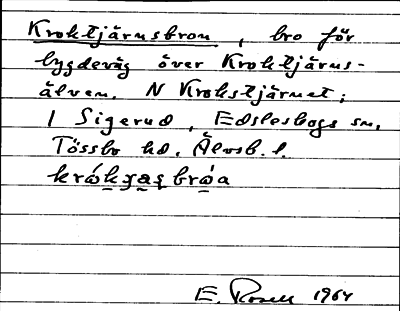 Kroktjärnsbron, bro för
bygdeväg över Kroktjärns-
älven. N Krokstjärnet;
I Sigerud, Edslesbogs sn,
Tössbo hd. Älvsb. l.
E. Rosell 1964